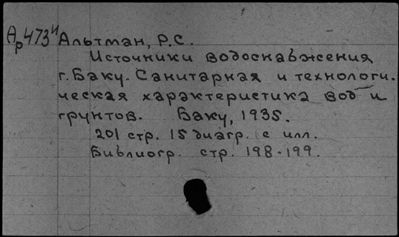 Ар473и Альтман, Р.С.
Источники водоснабжения
г. Баку. Санитарная и технологи-
ческая характеристика вод и
грунтов. Баку, 1935.
201 стр. 15 диагр. с илл.
Библиогр. стр. 198-199.